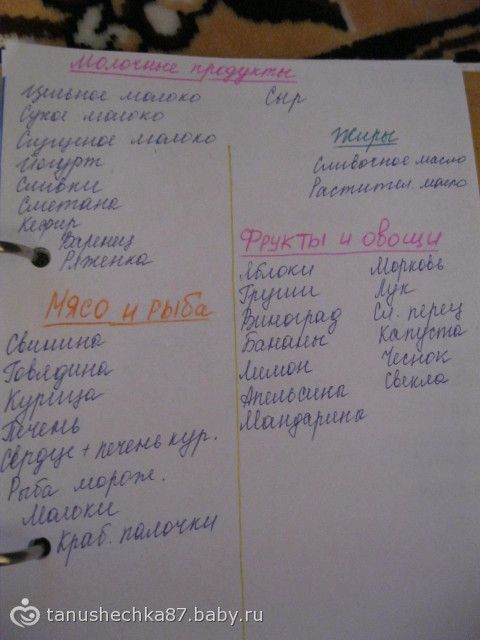 Молочные продукты
Цельное молоко
Сухое молоко
Сгущеное молоко
Йогурт
Сливки
Сметана
Кефир
Варенец
Ряженка
Сыр
Жиры
Сливочное масло
Растител. масло
Мясо и рыба
Свинина
Говядина
Курица
Печень
Сердце + печень кур.
Рыба морож.
Молоки
Краб. палочки
Фрукты и овощи
Яблоки
Груши
Виноград
Бананы
Лимон
Апельсина
Мандарина
Морковь
Лук
Сл. перец
Капуста
Чеснок
Свекла
tanushechka87.baby.ru